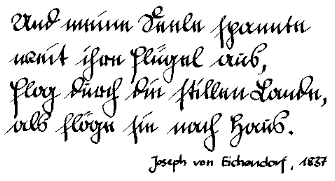 Und meine Seele spannte
weit ihre Flügel aus,
flog durch die stillen Lande,
als flöge sie nach Haus.
Joseph von Eichendorf, 1837